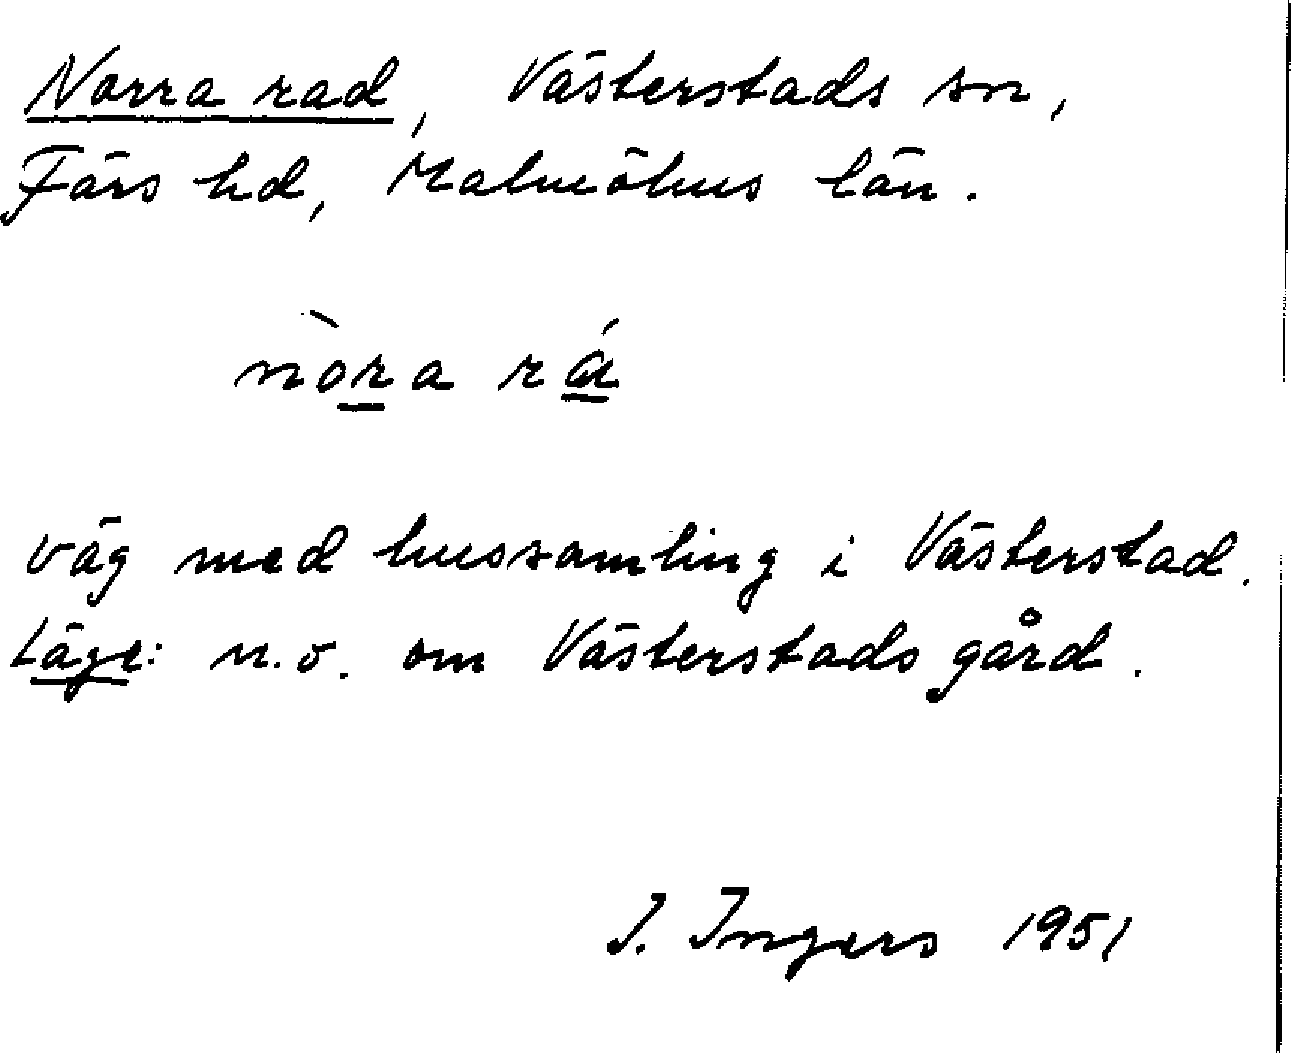 Norra rad, Västerstads sn,
Färs hd, Malmöhus län.
nòra rá
väg med hussamling i Västerstad.
Läge: n.v. om Västerstads gård.
I. Ingers 1951